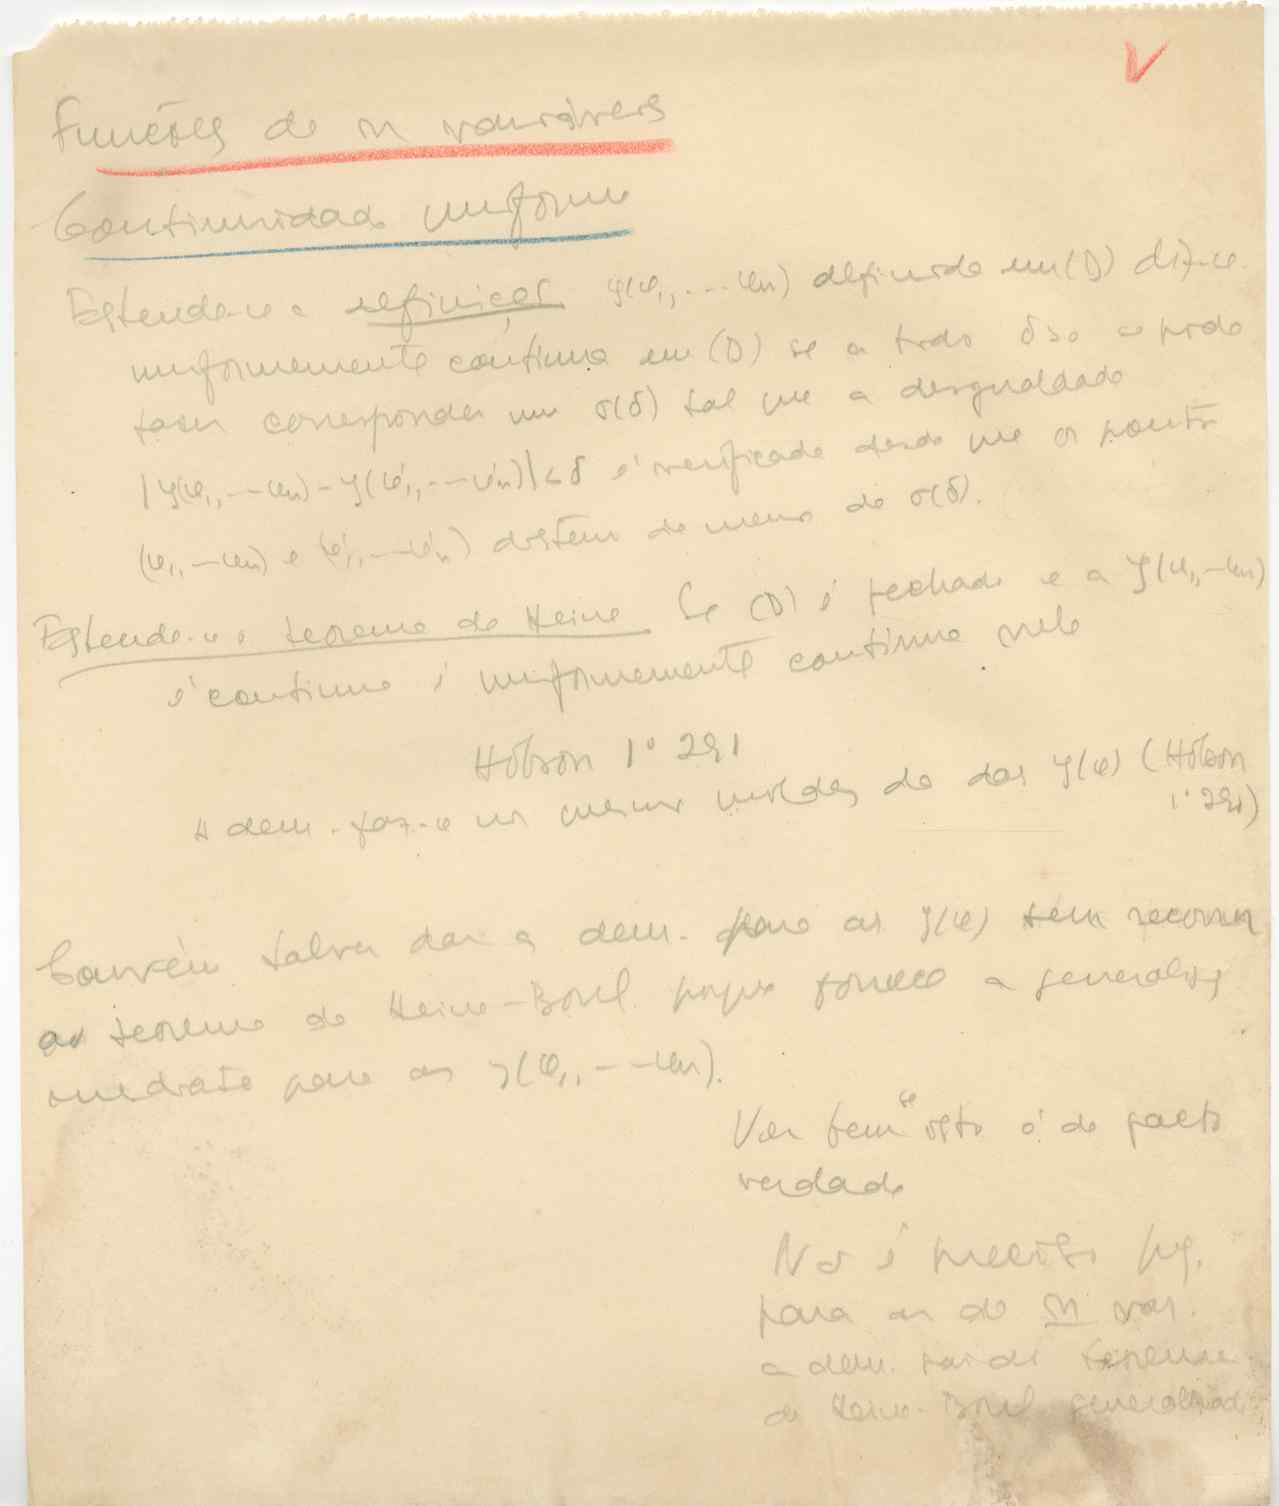 Funções de n variáveis
Continuidade uniforme
Estende-se a definição. y(x₁, ... xn) definida em (D) diz-se
uniformemente contínua em (D) se a todo δ>0 se pode
fazer corresponder um σ(δ) tal que a desigualdade
|y(x₁, ... xn) - y(x'₁, ... x'n)| < δ é verificada desde que os pontos
(x₁, ... xn) e (x'₁, ... x'n) distem de menos de σ(δ).
Estende-se o teorema de Heine Se (D) é fechado e a y(x₁, ... xn)
é contínua é uniformemente contínua nele
Hobson 1º 291
A dem. faz-se nos mesmos moldes da das y(x) (Hobson
1º 291)
Convém talvez dar a dem. para as y(x) sem recorrer
ao teorema de Heine-Borel porque fornece a generalis.
imediata para as y(x₁, ... xn).
Ver bem se isto é de facto
verdade
Não é preciso pq.
para as de n var.
a dem. sai do teorema
de Heine-Borel generalizado